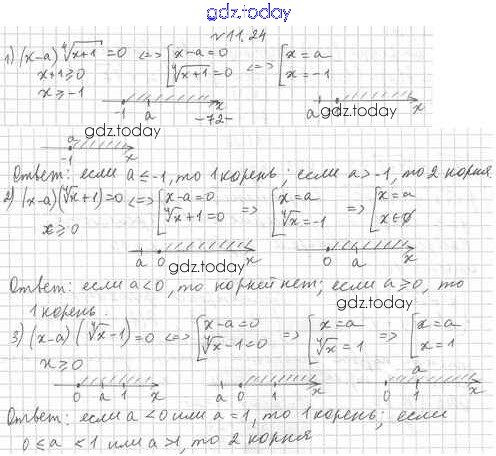 gdz.today
№11.24
1) (x-a)⁴√(x+1) = 0 <=> [x-a=0 <=> [x=a
x+1≥0 [⁴√(x+1) = 0 [x=-1
x≥-1
-1 a x a x
-72-
gdz.today gdz.today
a
-1 x
gdz.today
Ответ: если a≤-1, то 1 корень; если a>-1, то 2 корня
2) (x-a)(⁴√x+1)=0 <=> [x-a=0 => [x=a => [x=a
x≥0 [⁴√x+1=0 [⁴√x=-1 [x∈∅
gdz.today
a 0 x 0 a x
gdz.today
Ответ: если a<0, то корней нет; если a≥0, то
1 корень.
gdz.today
3) (x-a)(⁴√x-1)=0 <=> [x-a=0 => [x=a => [x=a
x≥0 [⁴√x-1=0 [⁴√x=1 [x=1
a
0 a 1 x a 0 1 x 0 1 x
gdz.today
Ответ: если a<0 или a=1, то 1 корень; если
0≤a<1 или a>1, то 2 корня